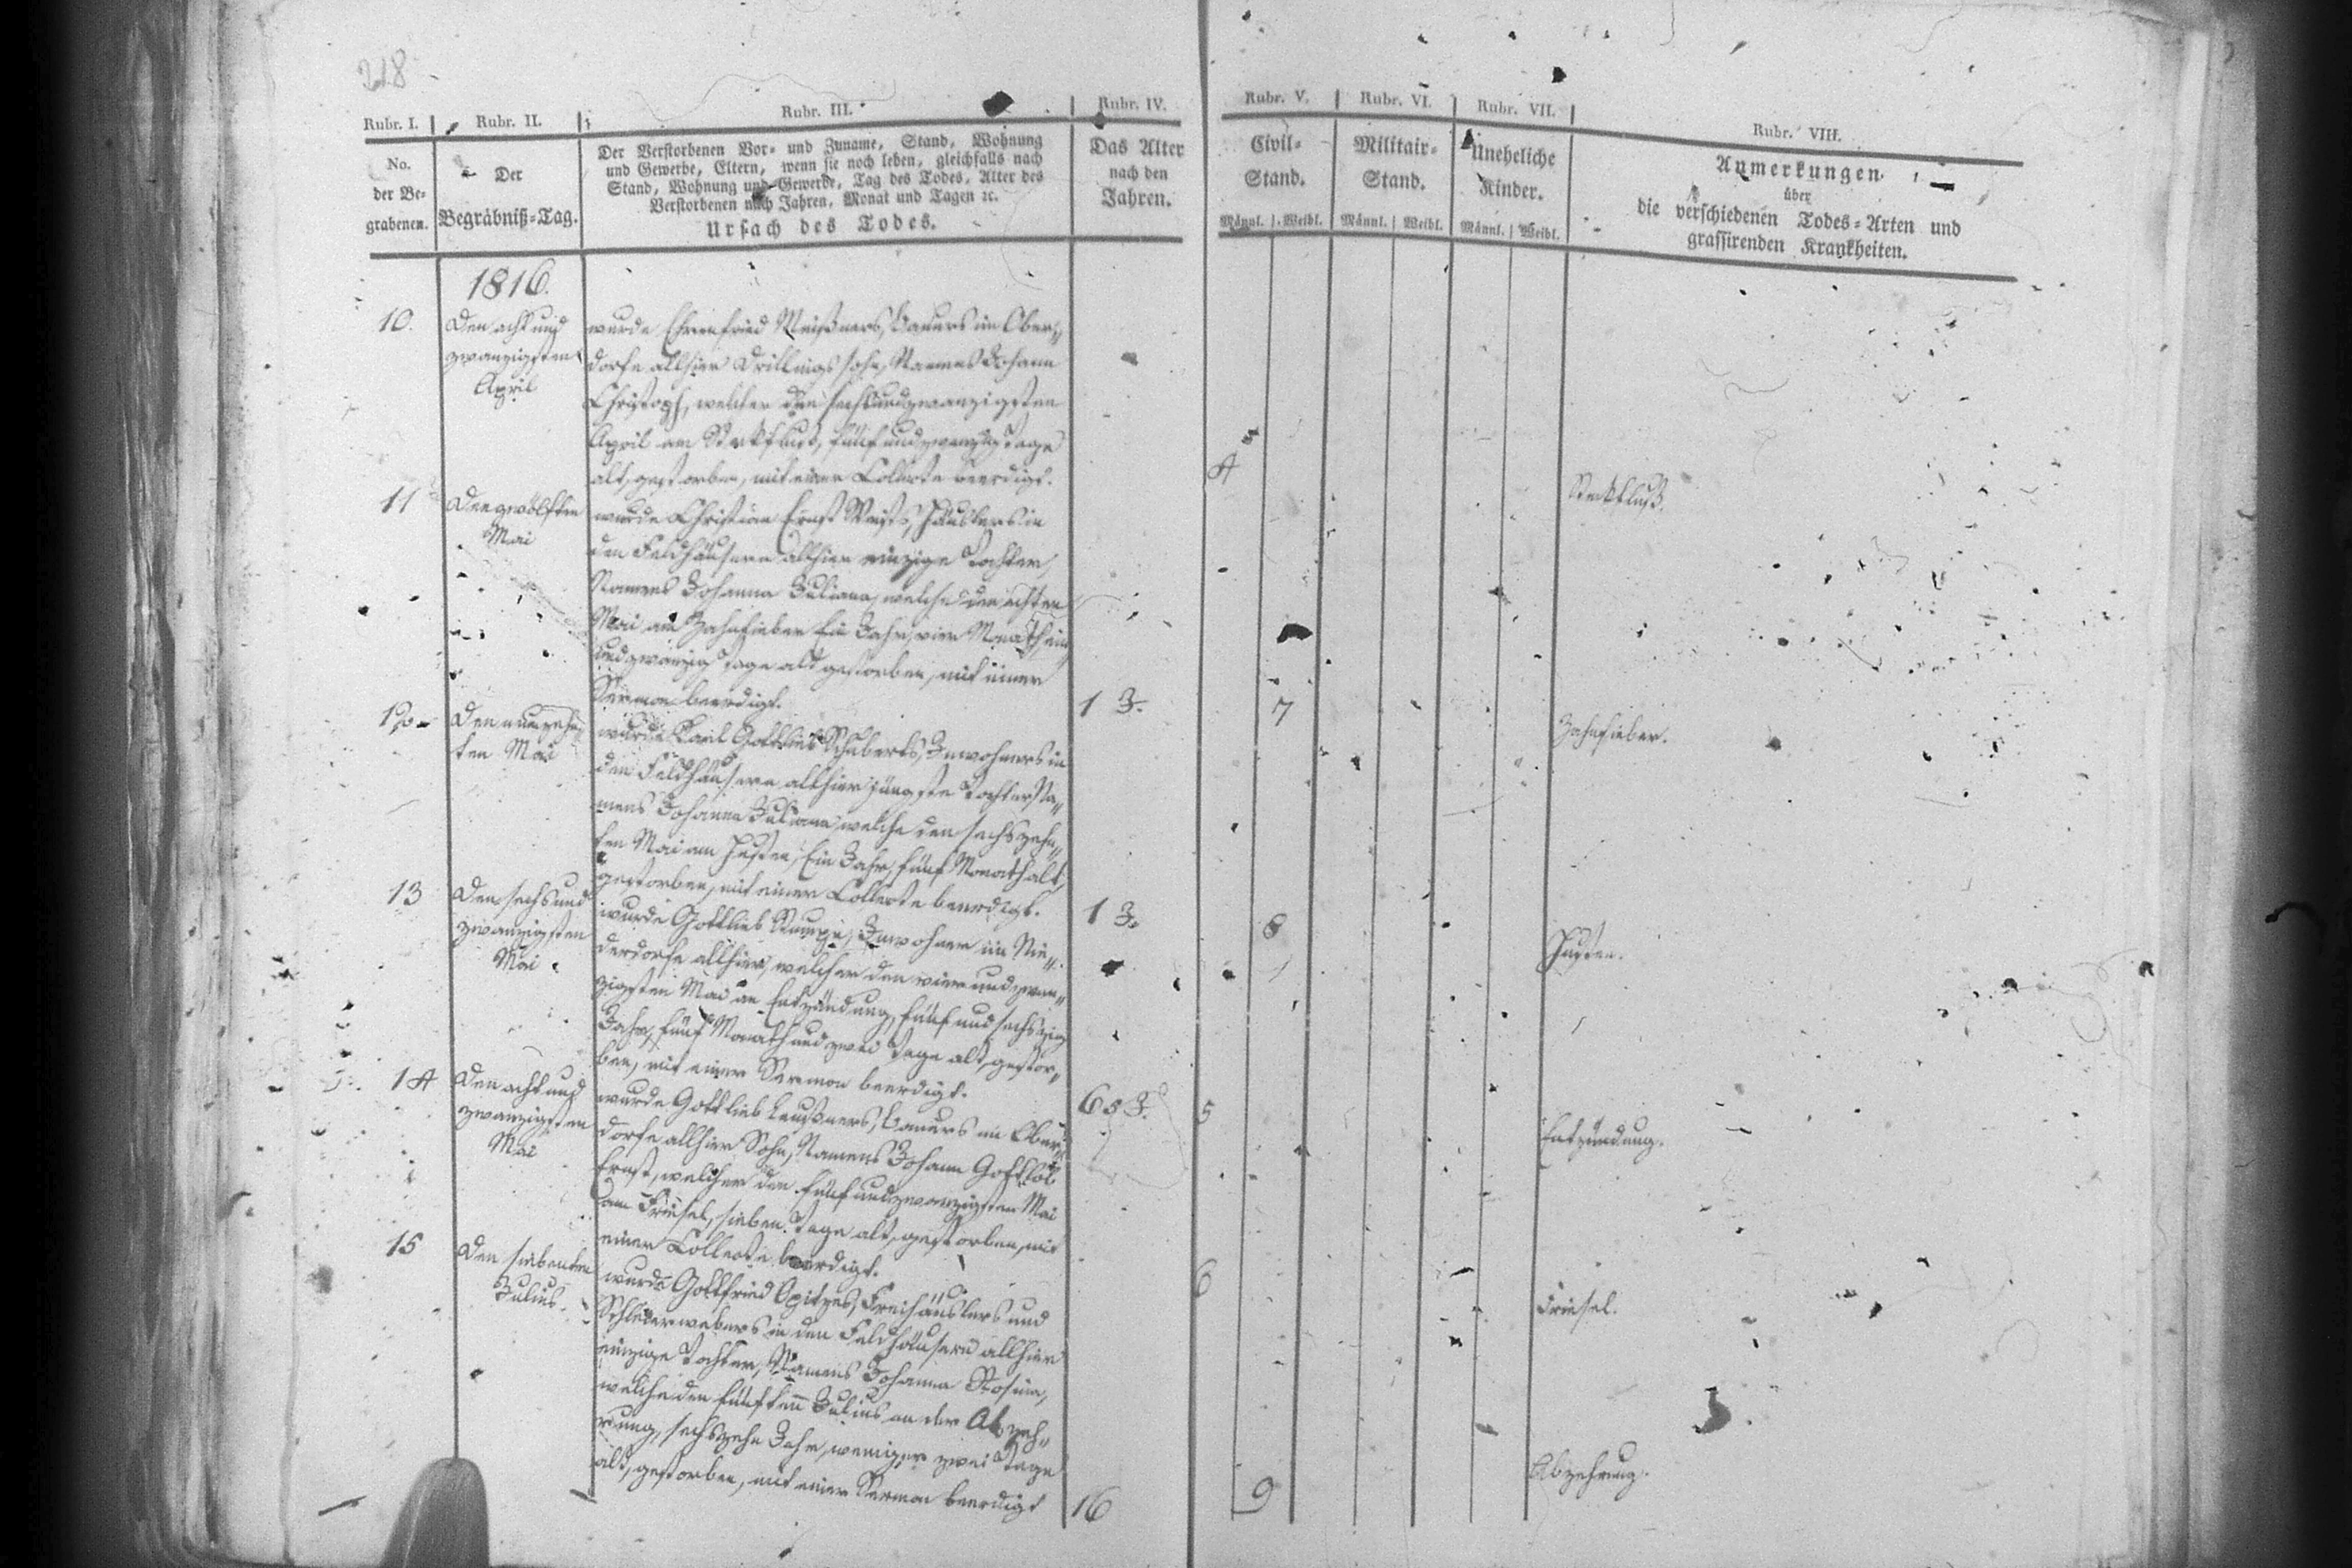 218
Rubr. I. Rubr. II. Rubr. III. Rubr. IV. Rubr. V. Rubr. VI. Rubr. VII. Rubr. VIII.
No.
der Be-
grabenen.
Der
Begräbniß-Tag.
Der Verstorbenen Vor- und Zuname, Stand, Wohnung
und Gewerbe, Eltern, wenn sie noch leben, gleichfalls nach
Stand, Wohnung und Gewerbe, Tag des Todes, Alter des
Verstorbenen nach Jahren, Monat und Tagen ꝛc.
Ursach des Todes.
Das Alter
nach den
Jahren.
Civil-
Stand.
Männl. Weibl.
Militair-
Stand.
Männl. Weibl.
Uneheliche
Kinder.
Männl. Weibl.
Anmerkungen
über
die verschiedenen Todes-Arten und
grassirenden Krankheiten.
1816.
10.
Den acht und
zwanzigsten
April
wurde Ehrenfried Meißners, Bauers im Ober-
dorfe allhier Drillings sohn, Namens Johann
Christoph, welcher den sechsundzwanzigsten
April am Steckfluß, fünf und zwanzig Tage
alt, gestorben, mit einer Collecte beerdigt.
4
Steckfluß.
11
Den zwölften
Mai
wurde Christian Ernst , Häuslers in
den Feldhäusern allhier einzige Tochter,
Namens Johanna Juliana, welche den achten
Mai am Zahnfieber Ein Jahr, vier Monath ein
und zwanzig Tage alt gestorben, mit einer
Sermon beerdigt.
1 J.
7
Zahnfieber.
12.
Den neunzehn-
ten Mai
wurde Karl Gottlieb Schuberts, Inwohners in
den Feldhäusern allhier jüngste Tochter Na-
mens Johanna Juliana, welche den sechszehn-
ten Mai am Husten, Ein Jahr, fünf Monath alt,
gestorben, mit einer Collecte beerdigt.
1 J.
8
Husten.
13
Den sechs und
zwanzigsten
Mai
wurde Gottlieb , Inwohner im Nie-
derdorfe allhier, welcher den vier und zwan-
zigsten Mai an Entzündung, fünf und sechszig
Jahr, fünf Monath und zwei Tage alt, gestor-
ben, mit einer Sermon beerdigt.
65 J.
5
Entzündung.
14
Den acht und
zwanzigsten
Mai
wurde Gottlieb , Bauers im Ober-
dorfe allhier Sohn, Namens Johann Gottlob
Ernst, welcher den fünf und zwanzigsten Mai
am Friesel, sieben Tage alt, gestorben, mit
einer Collecte beerdigt.
6
Friesel.
15
Den siebenten
Julius.
wurde Gottfried Opitzes, Freihäuslers und
Schleierwebers in den Feldhäusern allhier
einzige Tochter, Namens Johanna Rosina,
welche den fünften Julius an der Abzeh-
rung, sechszehn Jahr, weniger zwei Tage
alt, gestorben, mit einer Sermon beerdigt
16
9
Abzehrung.